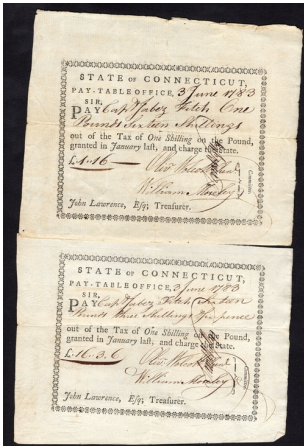 STATE OF CONNECTICUT,
PAY-TABLE-OFFICE, 3 June 1783
SIR,
PAY Capt Jabez Fitch One
Pounds Sixteen Shillings
out of the Tax of One Shilling on the Pound,
granted in January last, and charge the State.
£ 1.16
Oliv Wolcott Jun
William Moseley
Committee
John Lawrence, Esq; Treasurer.
STATE OF CONNECTICUT,
PAY-TABLE-OFFICE, 3 June 1783
SIR,
PAY Capt Jabez Fitch Sixteen
Pounds three Shillings Six pence
out of the Tax of One Shilling on the Pound,
granted in January last, and charge the State.
£ 16.3.6
Oliv Wolcott
William Moseley
John Lawrence, Esq; Treasurer.